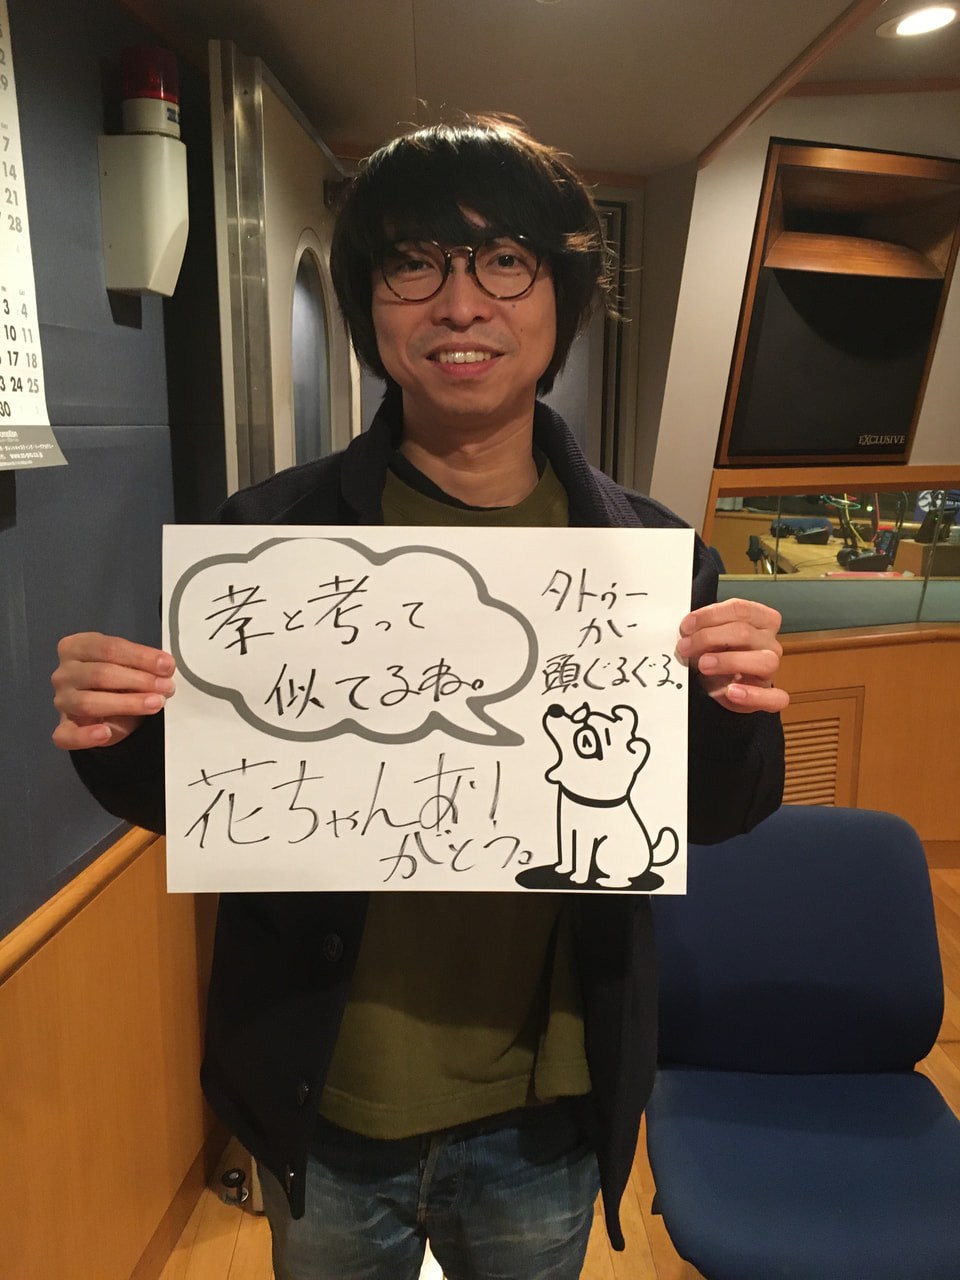 孝と考って
似てるね。
タトゥー
か
頭ぐるぐる。
花ちゃんあ!
がとつ。
EXCLUSIVE
7
14
21
28
3 4
10 11
17 18
24 25
30